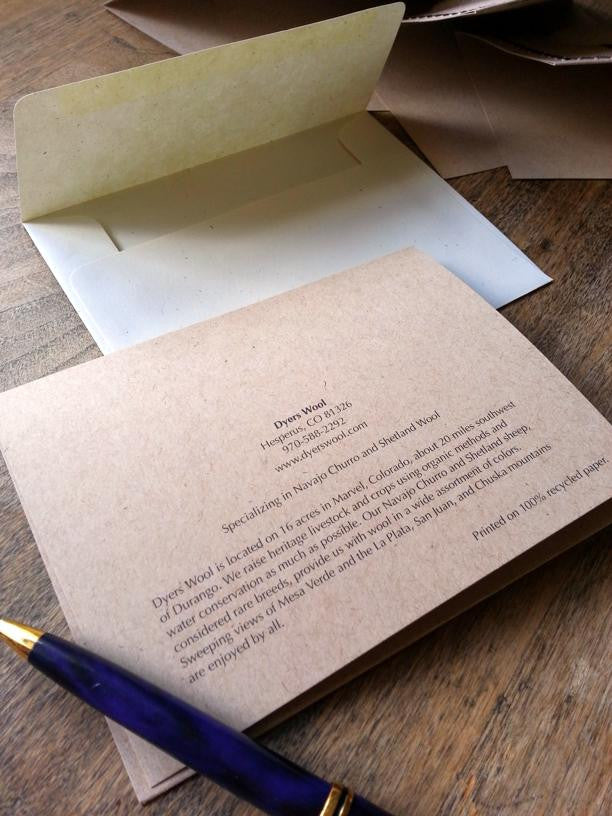 Dyers Wool
Hesperus, CO 81326
970-588-2292
www.dyerswool.com
Specializing in Navajo Churro and Shetland Wool
Dyers Wool is located on 16 acres in Marvel, Colorado, about 20 miles southwest
of Durango. We raise heritage livestock and crops using organic methods and
water conservation as much as possible. Our Navajo Churro and Shetland sheep,
considered rare breeds, provide us with wool in a wide assortment of colors.
Sweeping views of Mesa Verde and the La Plata, San Juan, and Chuska mountains
are enjoyed by all.
Printed on 100% recycled paper.